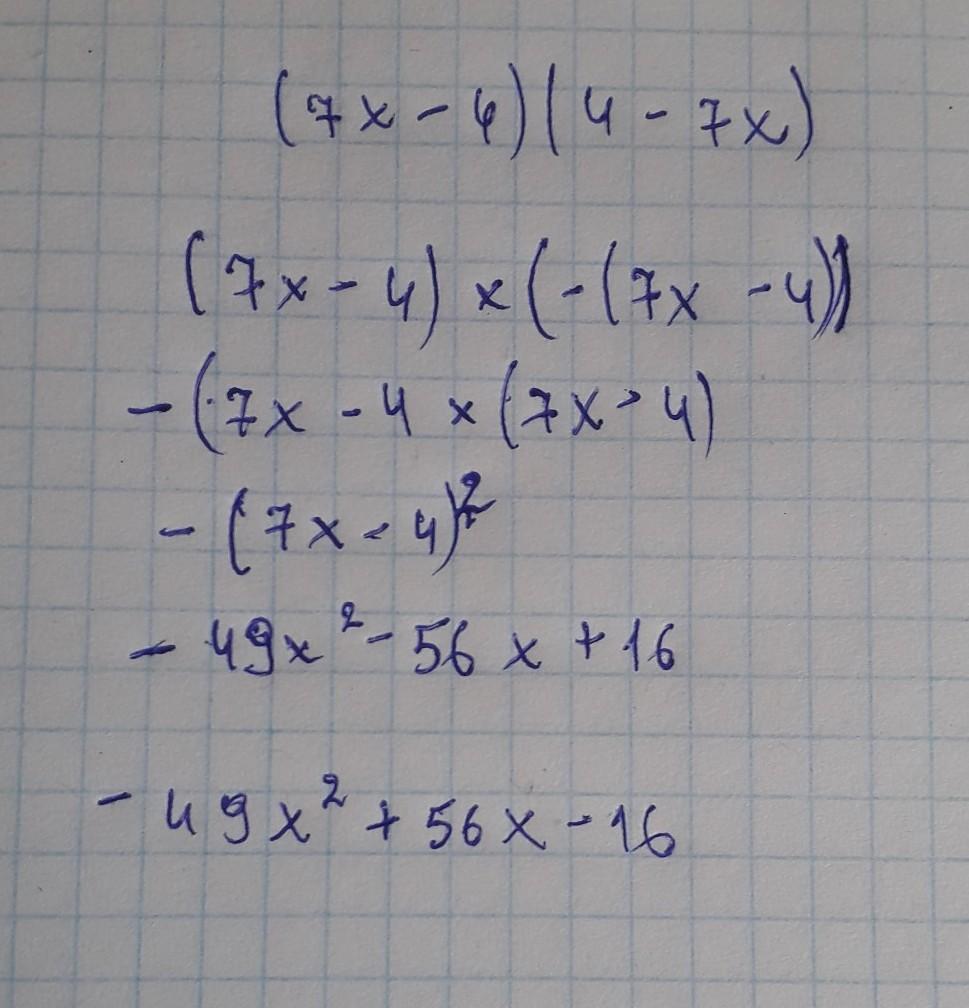 (7x - 4)(4 - 7x)
(7x - 4) x (-(7x - 4))
- (7x - 4 x (7x - 4)
- (7x - 4)²
- 49x² - 56x + 16
- 49x² + 56x - 16